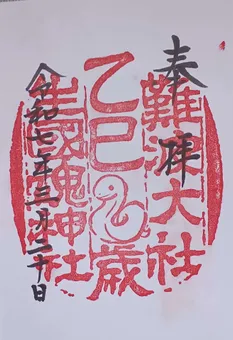 奉拝
難波大社
乙巳歳
生國魂神社
令和七年三月二十日